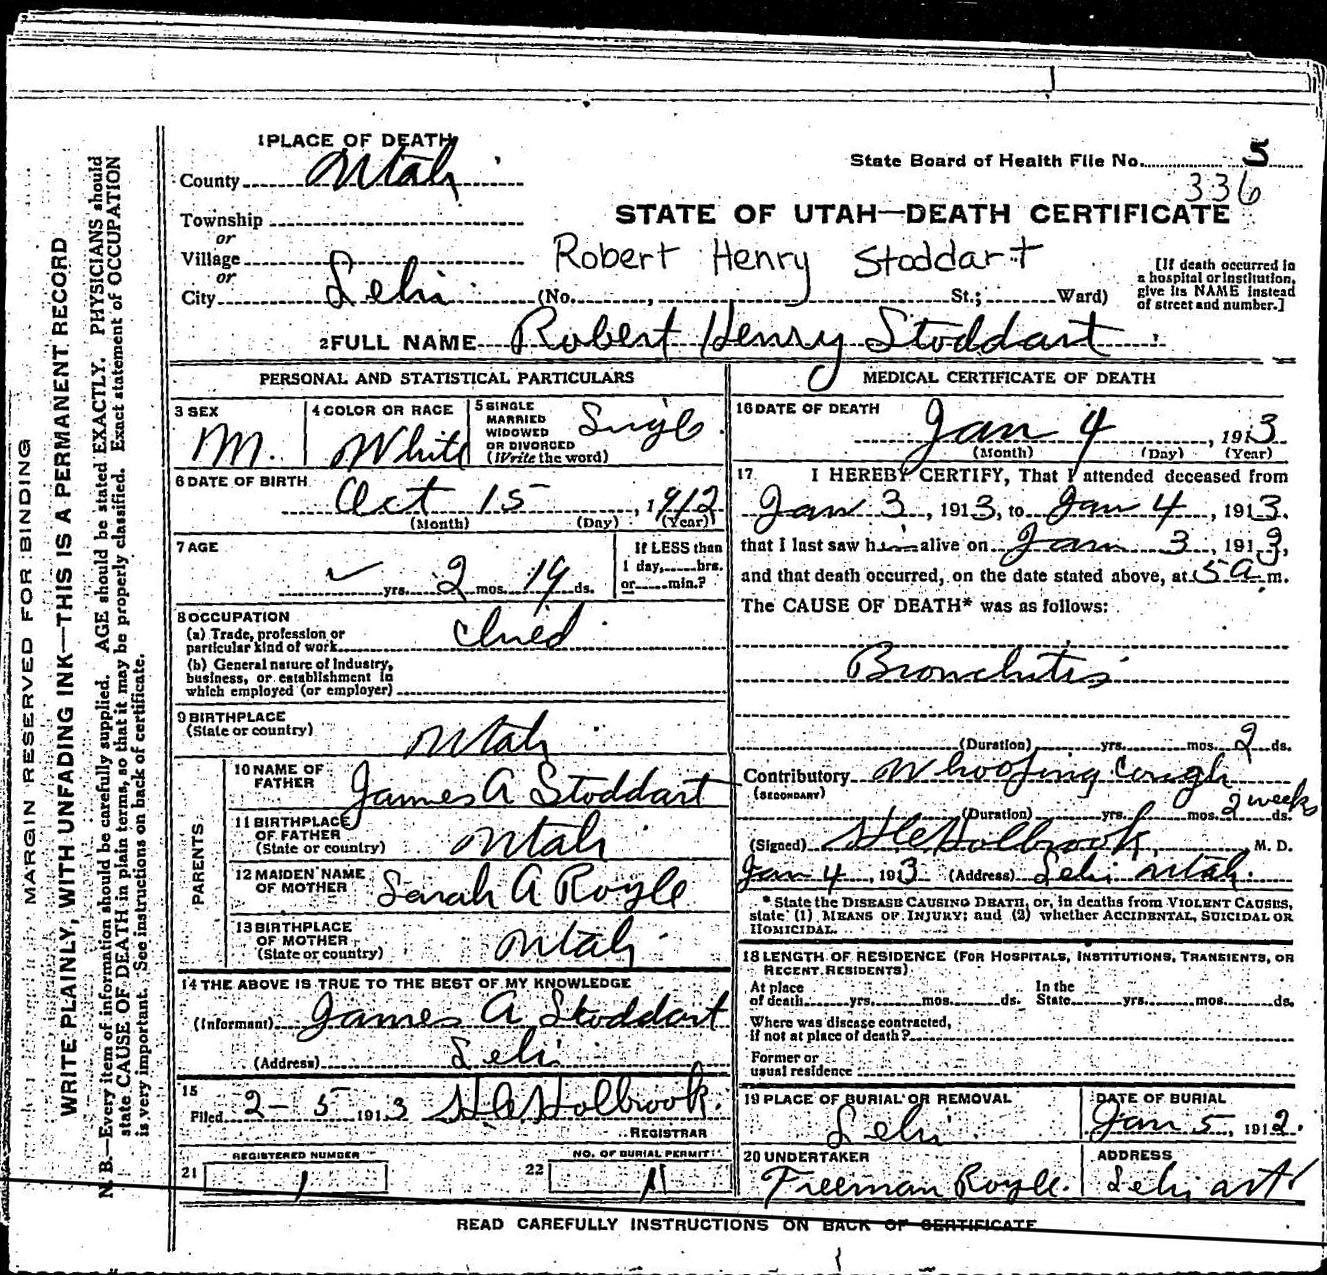 1 PLACE OF DEATH
County Utah
State Board of Health File No. 5
336
Township
or
Village
or
City Lehi (No. , St.; Ward)
STATE OF UTAH—DEATH CERTIFICATE
Robert Henry Stoddart
[If death occurred in
a hospital or institution,
give its NAME instead
of street and number.]
2 FULL NAME Robert Henry Stoddart
PERSONAL AND STATISTICAL PARTICULARS
3 SEX
M.
4 COLOR OR RACE
White
5 SINGLE
MARRIED
WIDOWED
OR DIVORCED
(Write the word)
Single
6 DATE OF BIRTH
Oct 15, 1912
(Month) (Day) (Year)
7 AGE
yrs. 2 mos. 19 ds.
If LESS than
1 day, hrs.
or min.?
8 OCCUPATION
(a) Trade, profession or
particular kind of work Child
(b) General nature of industry,
business, or establishment in
which employed (or employer)
9 BIRTHPLACE
(State or country)
Utah
PARENTS
10 NAME OF
FATHER
James A Stoddart
11 BIRTHPLACE
OF FATHER
(State or country)
Utah
12 MAIDEN NAME
OF MOTHER
Sarah A Royle
13 BIRTHPLACE
OF MOTHER
(State or country)
Utah
14 THE ABOVE IS TRUE TO THE BEST OF MY KNOWLEDGE
(Informant) James A Stoddart
(Address) Lehi
15
Filed 2-5 1913 Holbrook.
REGISTRAR
REGISTERED NUMBER
21 1
NO. OF BURIAL PERMIT
22 1
MEDICAL CERTIFICATE OF DEATH
16 DATE OF DEATH
Jan 4, 1913
(Month) (Day) (Year)
17 I HEREBY CERTIFY, That I attended deceased from
Jan 3, 1913, to Jan 4, 1913.
that I last saw him alive on Jan 3, 1913,
and that death occurred, on the date stated above, at 5 a. m.
The CAUSE OF DEATH* was as follows:
Bronchitis
(Duration) yrs. mos. 2 ds.
Contributory Whooping Cough
(SECONDARY)
(Duration) yrs. mos. 2 weeks ds.
(Signed) Holbrook, M. D.
Jan 4, 1913 (Address) Lehi Utah.
* State the DISEASE CAUSING DEATH, or, in deaths from VIOLENT CAUSES,
state (1) MEANS OF INJURY; and (2) whether ACCIDENTAL, SUICIDAL OR
HOMICIDAL.
18 LENGTH OF RESIDENCE (FOR HOSPITALS, INSTITUTIONS, TRANSIENTS, OR
RECENT RESIDENTS)
At place
of death yrs. mos. ds.
In the
State yrs. mos. ds.
Where was disease contracted,
if not at place of death?
Former or
usual residence
19 PLACE OF BURIAL OR REMOVAL
Lehi
DATE OF BURIAL
Jan 5, 1912.
20 UNDERTAKER
Freeman Royle.
ADDRESS
Lehi
READ CAREFULLY INSTRUCTIONS ON BACK OF CERTIFICATE
MARGIN RESERVED FOR BINDING
WRITE PLAINLY, WITH UNFADING INK—THIS IS A PERMANENT RECORD
N. B.—Every item of information should be carefully supplied. AGE should be stated EXACTLY. PHYSICIANS should
state CAUSE OF DEATH in plain terms, so that it may be properly classified. Exact statement of OCCUPATION
is very important. See instructions on back of certificate.